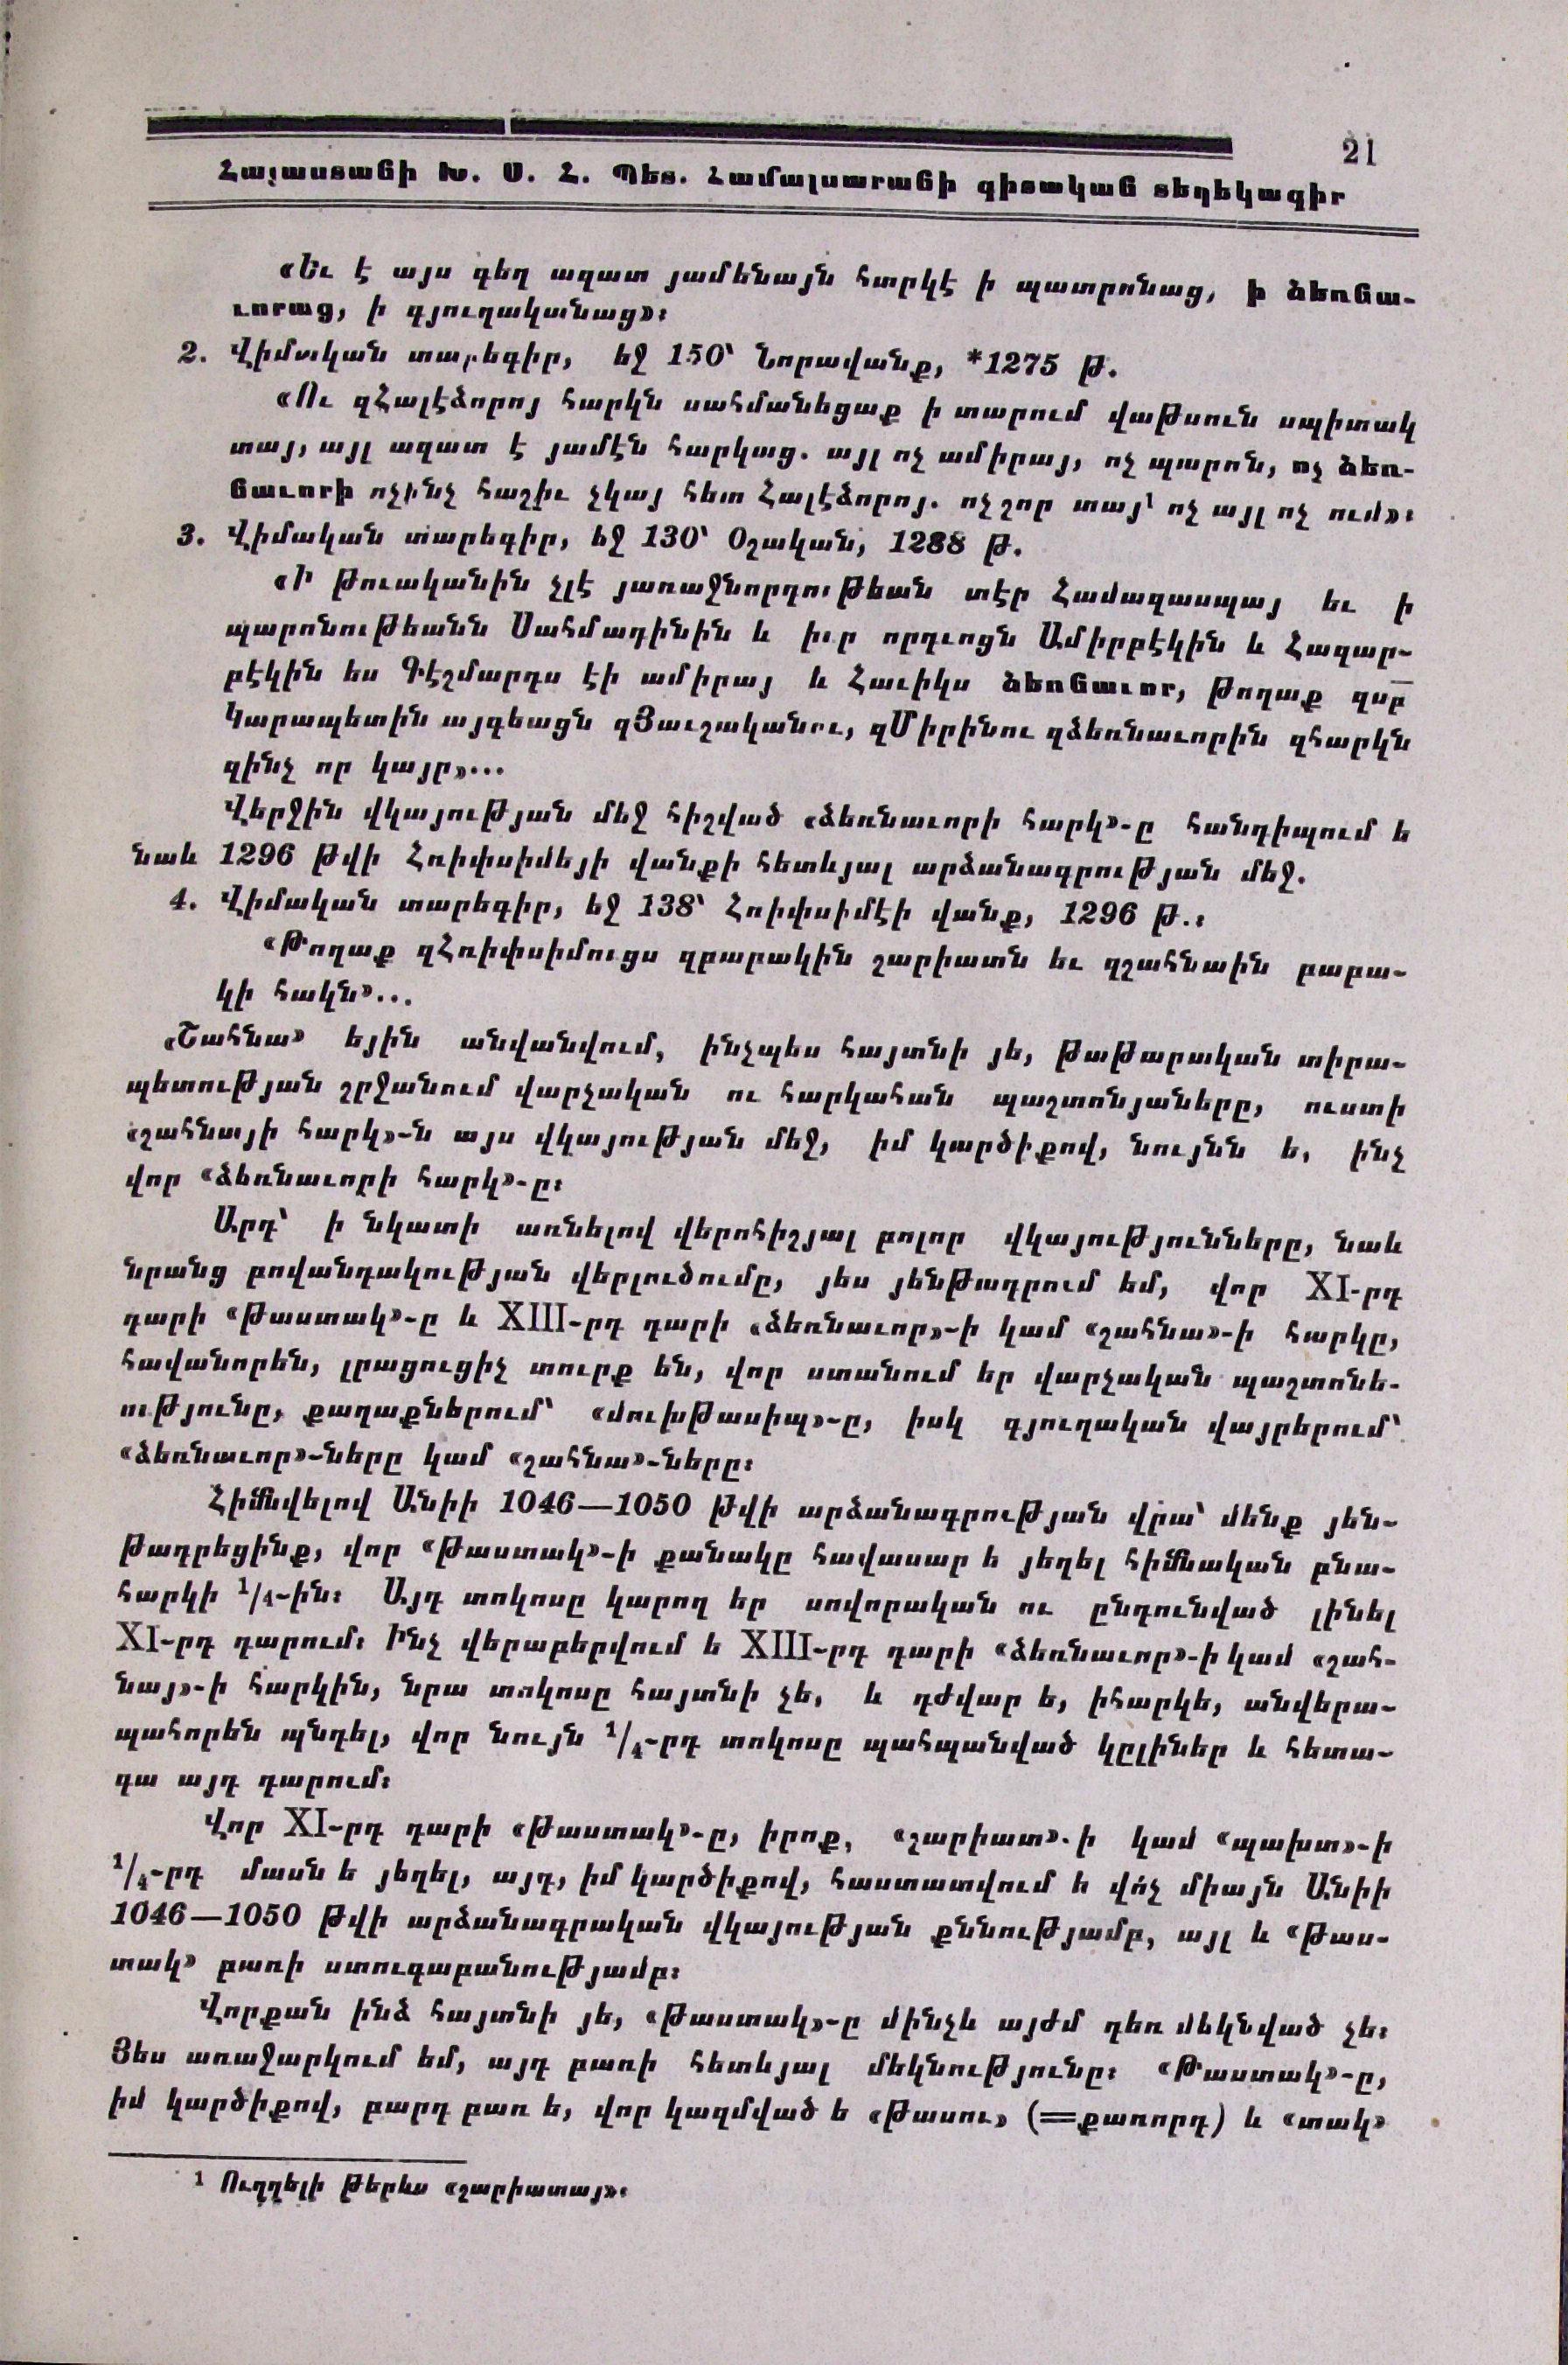 21
Հայաստանի Խ. Ս. Հ. Պետ. Համալսարանի գիտական տեղեկագիր
«Եւ է այս գեղ ազատ յամենայն հարկէ ի պատրոնաց, ի ձեռնա-
ւորաց, ի գյուղականաց»։
2. Վիմական տարեգիր, եջ 150՝ Նորավանք, *1275 թ.
«Ու զՀալէձորոյ հարկն սահմանեցաք ի տարում վաթսուն սպիտակ
տայ, այլ ազատ է յամէն հարկաց. այլ ոչ ամիրայ, ոչ պարոն, ոչ ձեռ-
նաւորի ոչինչ հաշիւ չկայ հետ Հալէձորոյ. ոչ շոր տայ՝ ոչ այլ ոչ ում»։
3. Վիմական տարեգիր, եջ 130՝ Օշական, 1288 թ.
«Ի թուականին չլէ յառաջնորդութեան տէր Համազասպայ եւ ի
պարոնութեանն Սահմադինին և իւր որդւոցն Ամիրբէկին և Հազար-
բէկին ես Գէշմարդս էի ամիրայ և Հաւիկս ձեռնաւոր, թողաք զսբ
Կարապետին այգեացն զՅաւշականու, զՄիրինու զձեռնաւորին զհարկն
զինչ որ կայր»...
Վերջին վկայության մեջ հիշված «ձեռնաւորի հարկ»-ը հանդիպում ե
նաև 1296 թվի Հռիփսիմեյի վանքի հետևյալ արձանագրության մեջ.
4. Վիմական տարեգիր, եջ 138՝ Հռիփսիմէի վանք, 1296 թ.։
«Թողաք զՀռիփսիմուցս զբարակին շարիատն եւ զշահնաին բաբա-
կի հակն»...
«Շահնա» եյին անվանվում, ինչպես հայտնի յե, թաթարական տիրա-
պետության շրջանում վարչական ու հարկահան պաշտոնյաները, ուստի
«շահնայի հարկ»-ն այս վկայության մեջ, իմ կարծիքով, նույնն ե, ինչ
վոր «ձեռնաւորի հարկ»-ը։
Արդ՝ ի նկատի առնելով վերոհիշյալ բոլոր վկայությունները, նաև
նրանց բովանդակության վերլուծումը, յես յենթադրում եմ, վոր XI-րդ
դարի «թաստակ»-ը և XIII-րդ դարի «ձեռնաւոր»-ի կամ «շահնա»-ի հարկը,
հավանորեն, լրացուցիչ տուրք են, վոր ստանում եր վարչական պաշտոնե-
ությունը, քաղաքներում՝ «մուխթասիպ»-ը, իսկ գյուղական վայրերում՝
«ձեռնաւոր»-ները կամ «շահնա»-ները։
Հիմնվելով Անիի 1046—1050 թվի արձանագրության վրա՝ մենք յեն-
թադրեցինք, վոր «թաստակ»-ի քանակը հավասար ե յեղել հիմնական բնա-
հարկի 1/4-ին։ Այդ տոկոսը կարող եր սովորական ու ընդունված լինել
XI-րդ դարում։ Ինչ վերաբերվում ե XIII-րդ դարի «ձեռնաւոր»-ի կամ «շահ-
նայ»-ի հարկին, նրա տոկոսը հայտնի չե, և դժվար ե, իհարկե, անվերա-
պահորեն պնդել, վոր նույն 1/4-րդ տոկոսը պահպանված կըլիներ և հետա-
գա այդ դարում։
Վոր XI-րդ դարի «թաստակ»-ը, իրոք, «շարիատ»-ի կամ «պախտ»-ի
1/4-րդ մասն ե յեղել, այդ, իմ կարծիքով, հաստատվում ե վո՛չ միայն Անիի
1046—1050 թվի արձանագրական վկայության քննությամբ, այլ և «թաս-
տակ» բառի ստուգաբանությամբ։
Վորքան ինձ հայտնի յե, «թաստակ»-ը մինչև այժմ դեռ մեկնված չե։
Յես առաջարկում եմ, այդ բառի հետևյալ մեկնությունը։ «Թաստակ»-ը,
իմ կարծիքով, բարդ բառ ե, վոր կազմված ե «թասու» (=քառորդ) և «տակ»
1 Ուղղելի թերևս «շարիատայ»։